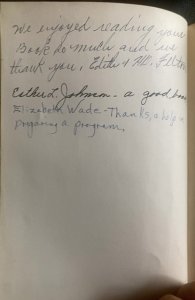 We enjoyed reading your
Book so much and we
thank you, Edith &
Esther L. Johnson - a good book
Elizabeth Wade - Thanks, a help in
preparing a program.